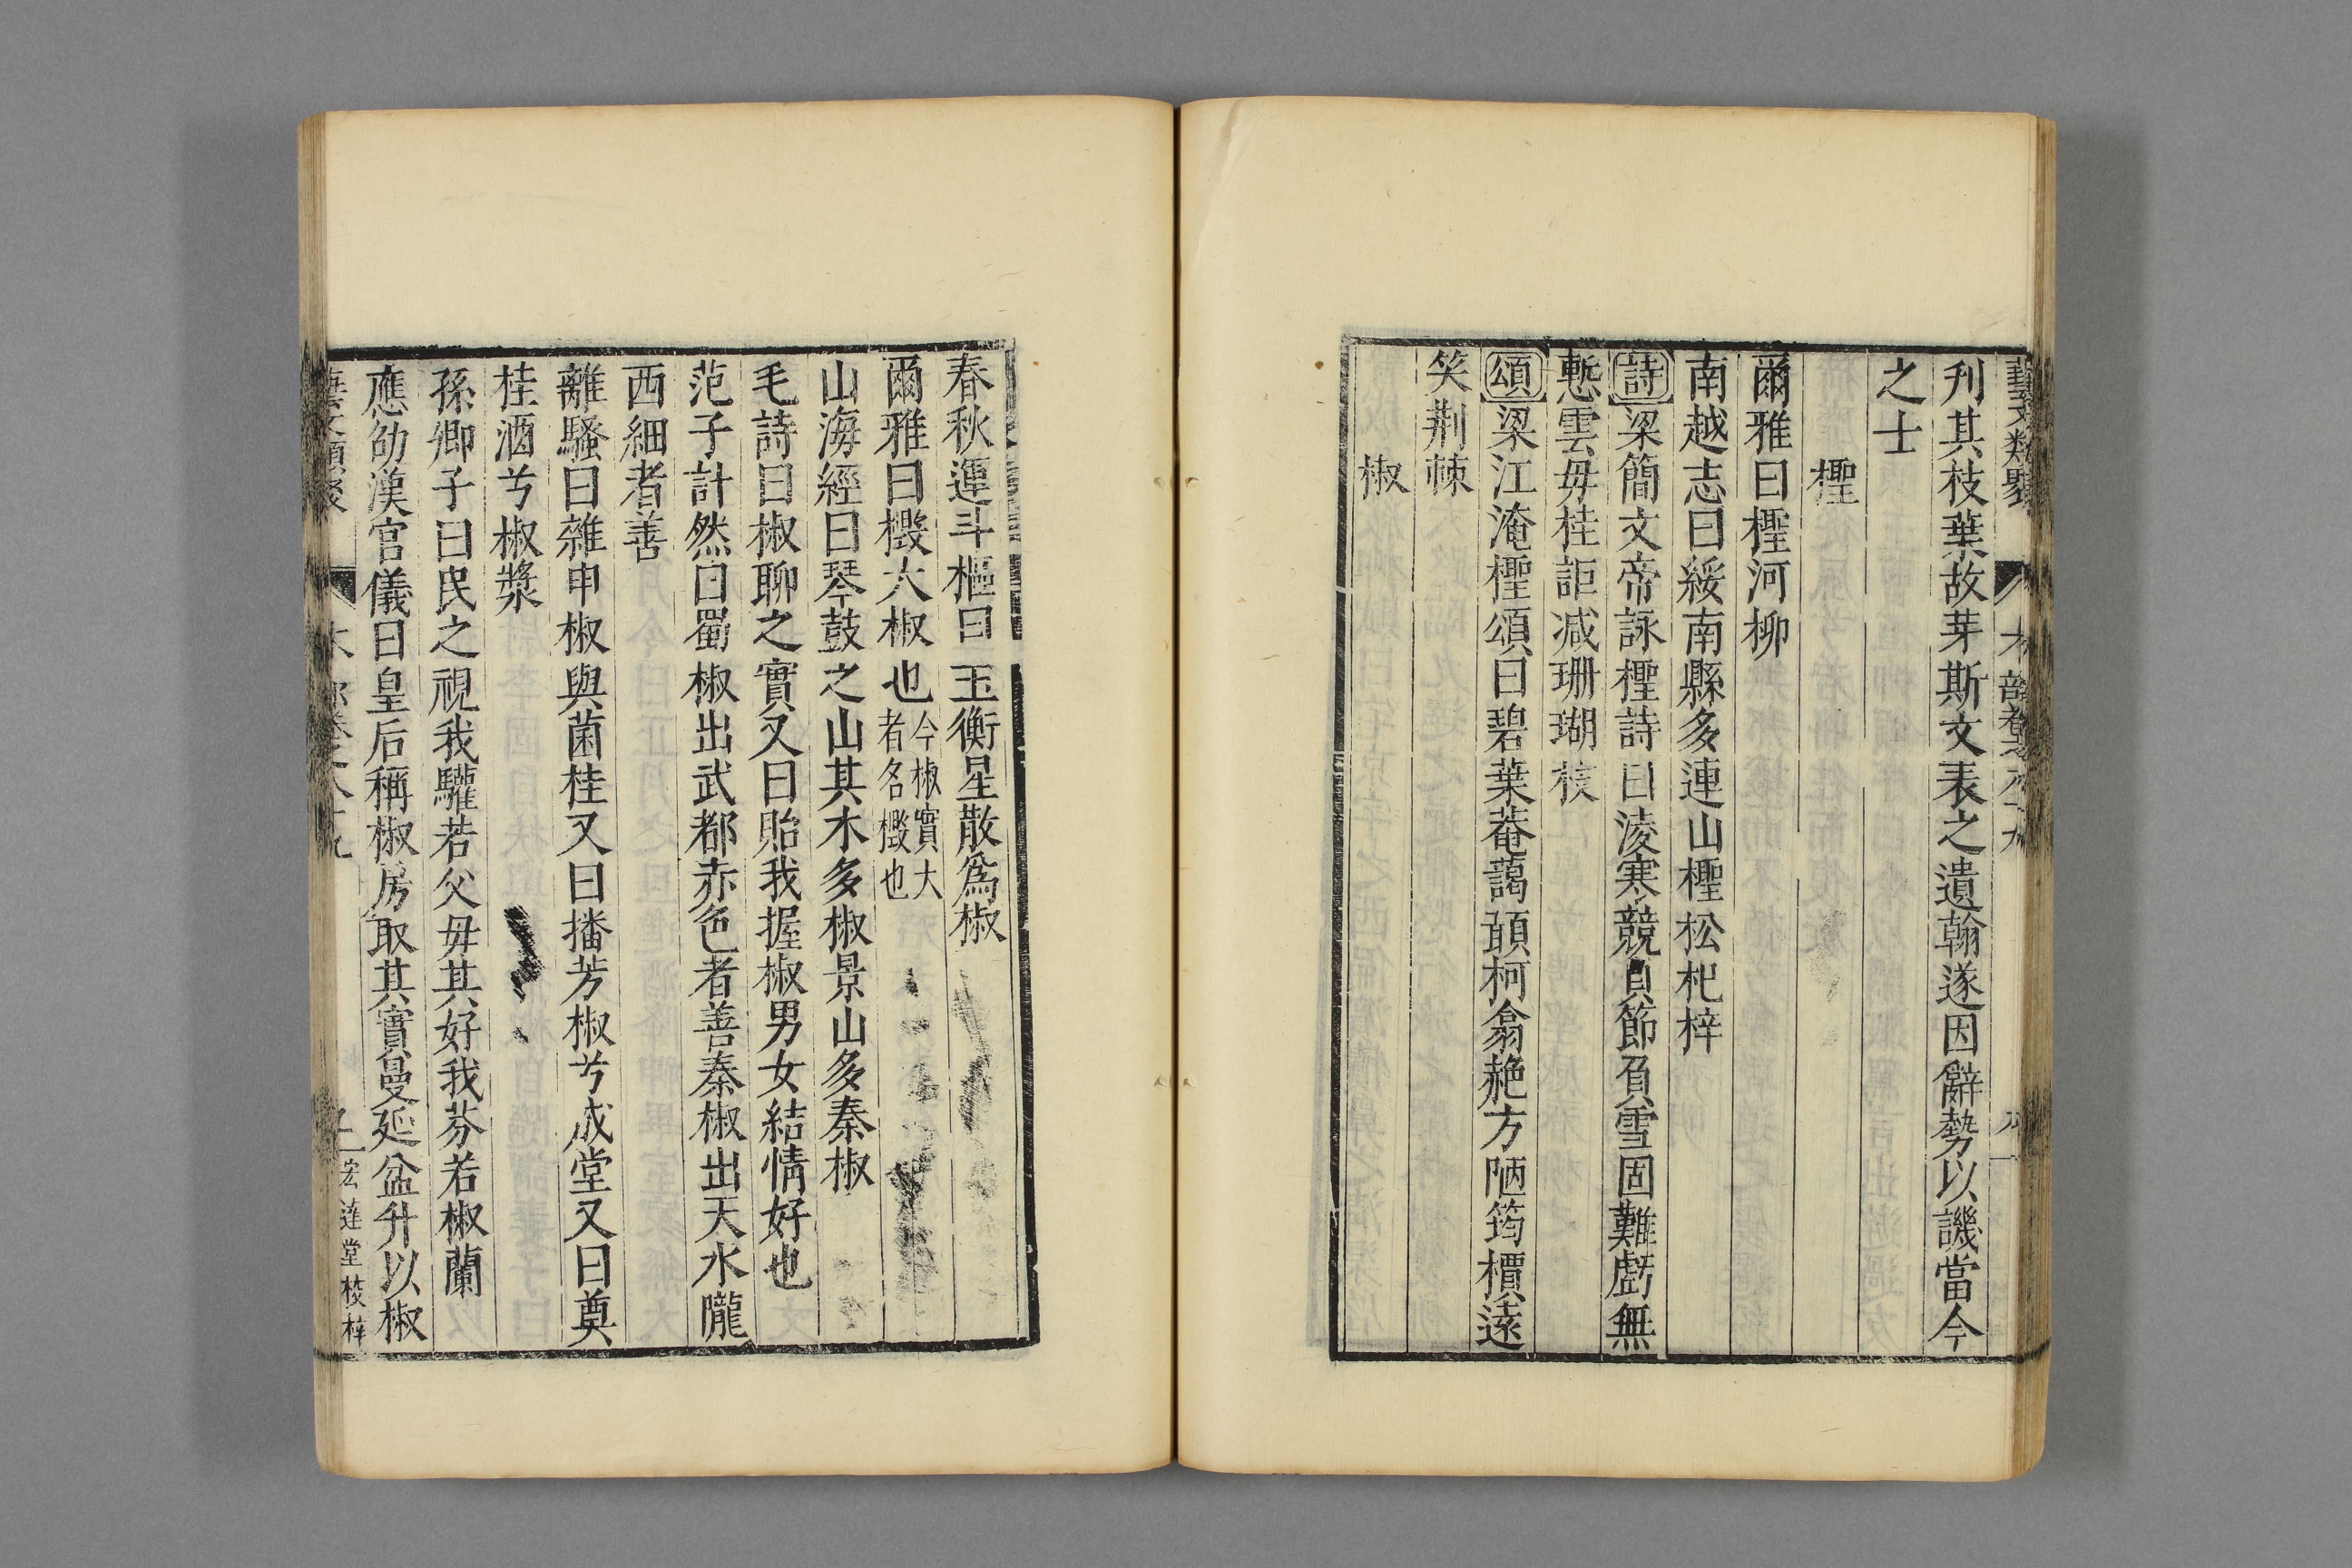 藝文類聚 木部卷之八十九
刋其枝葉故芽斯文表之遺翰遂因辭勢以譏當今
之士
檉
爾雅曰檉河柳
南越志曰綏南縣多連山檉松杞梓
詩梁簡文帝詠檉詩曰淩寒競貞節負雪固難虧無
慙雲毋桂詎减珊瑚枝
頌梁江淹檉頌曰碧葉菴藹頳柯翕赩方陋筠檟遠
笑荆棘
椒
春秋運斗樞曰玉衡星散爲椒
爾雅曰檓大椒也今椒實大者名檓也
山海經曰琴鼓之山其木多椒景山多秦椒
毛詩曰椒聊之實又曰貽我握椒男女結情好也
范子計然曰蜀椒出武都赤色者善秦椒出天水隴
西細者善
離騷曰雜申椒與菌桂又曰播芳椒兮成堂又曰奠
桂酒兮椒漿
孫卿子曰民之視我驩若父毋其好我芬若椒蘭
應劭漢官儀曰皇后稱椒房取其實曼延盆升以椒
藝文類聚 木部卷之八十九 宏達堂校梓